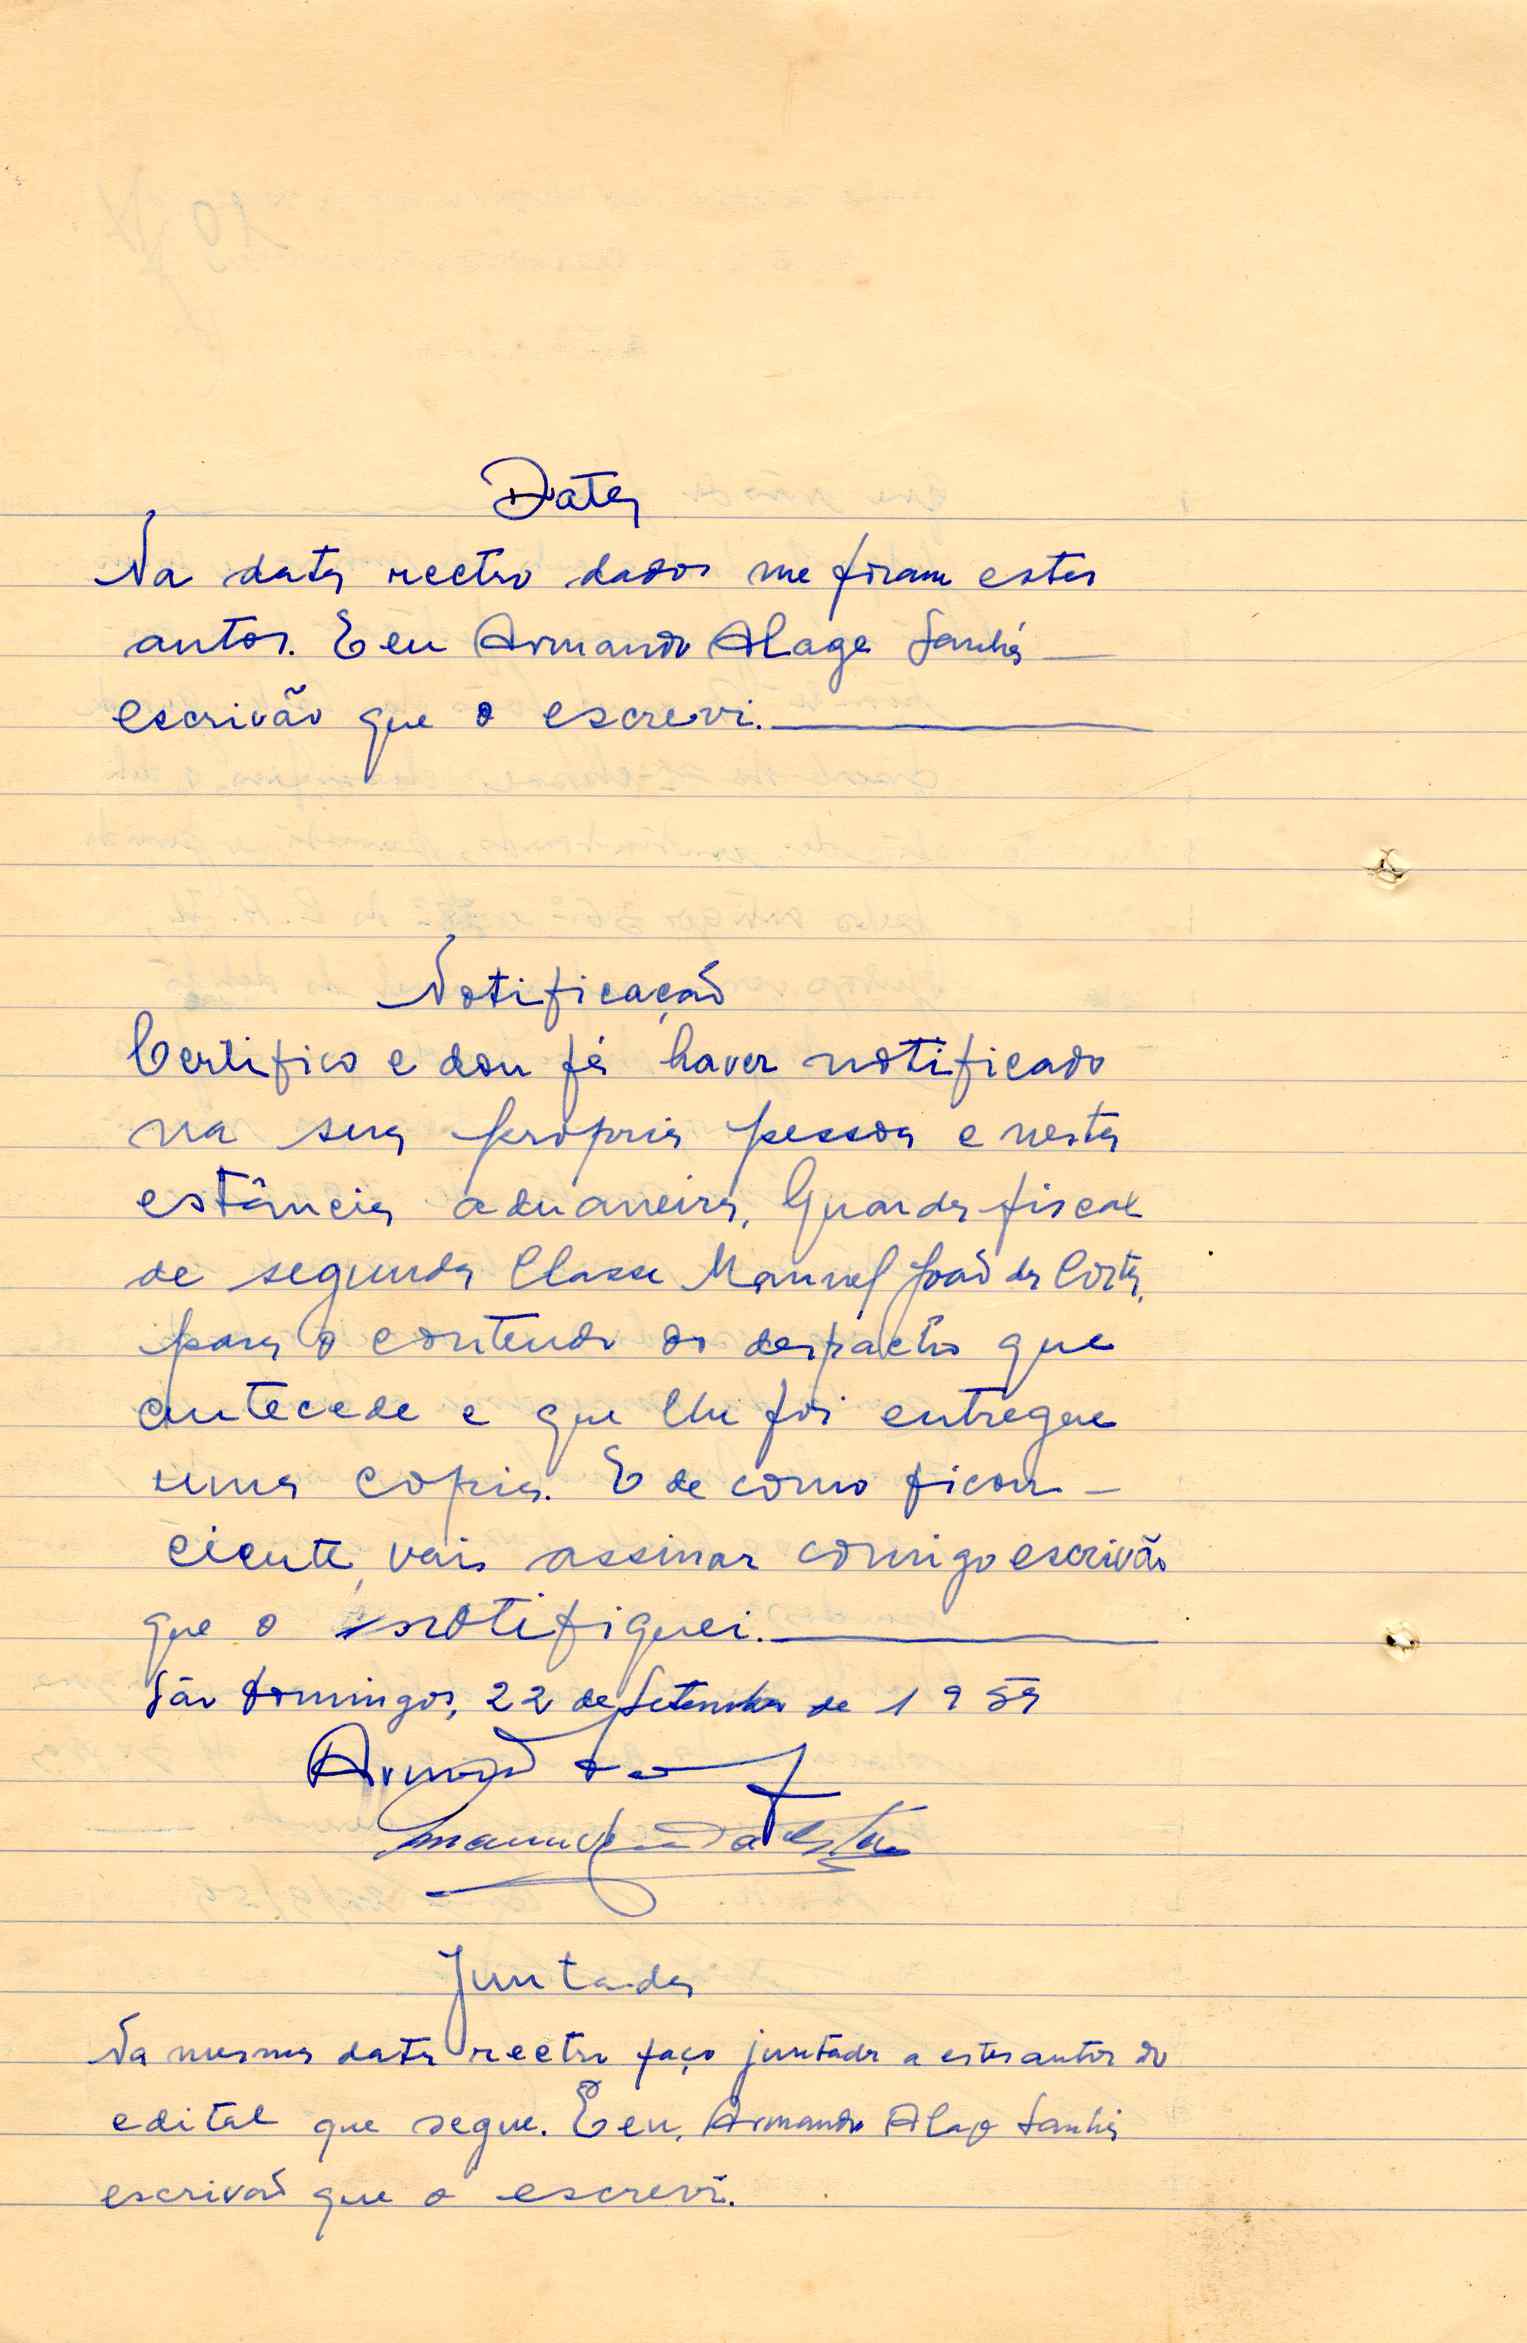 Data
Na data rectro dados me foram estes
autos. E eu Armando Alage Sanhá
escrivão que o escrevi.
Notificação
Certifico e dou fé haver notificado
na sua própria pessoa e nesta
estância aduaneira, Guarda fiscal
de segunda Classe Manuel João da Costa,
para o conteudo do despacho que
antecede e que lhe foi entregue
uma copia. E de como ficou -
ciente, vais assinar comigo escrivão
que o notifiquei.
São Domingos, 22 de Setembro de 1959
Juntada
Na mesma data rectro faço juntada a estes autos do
edital que segue. E eu, Armando Alage Sanhá
escrivão que o escrevi.